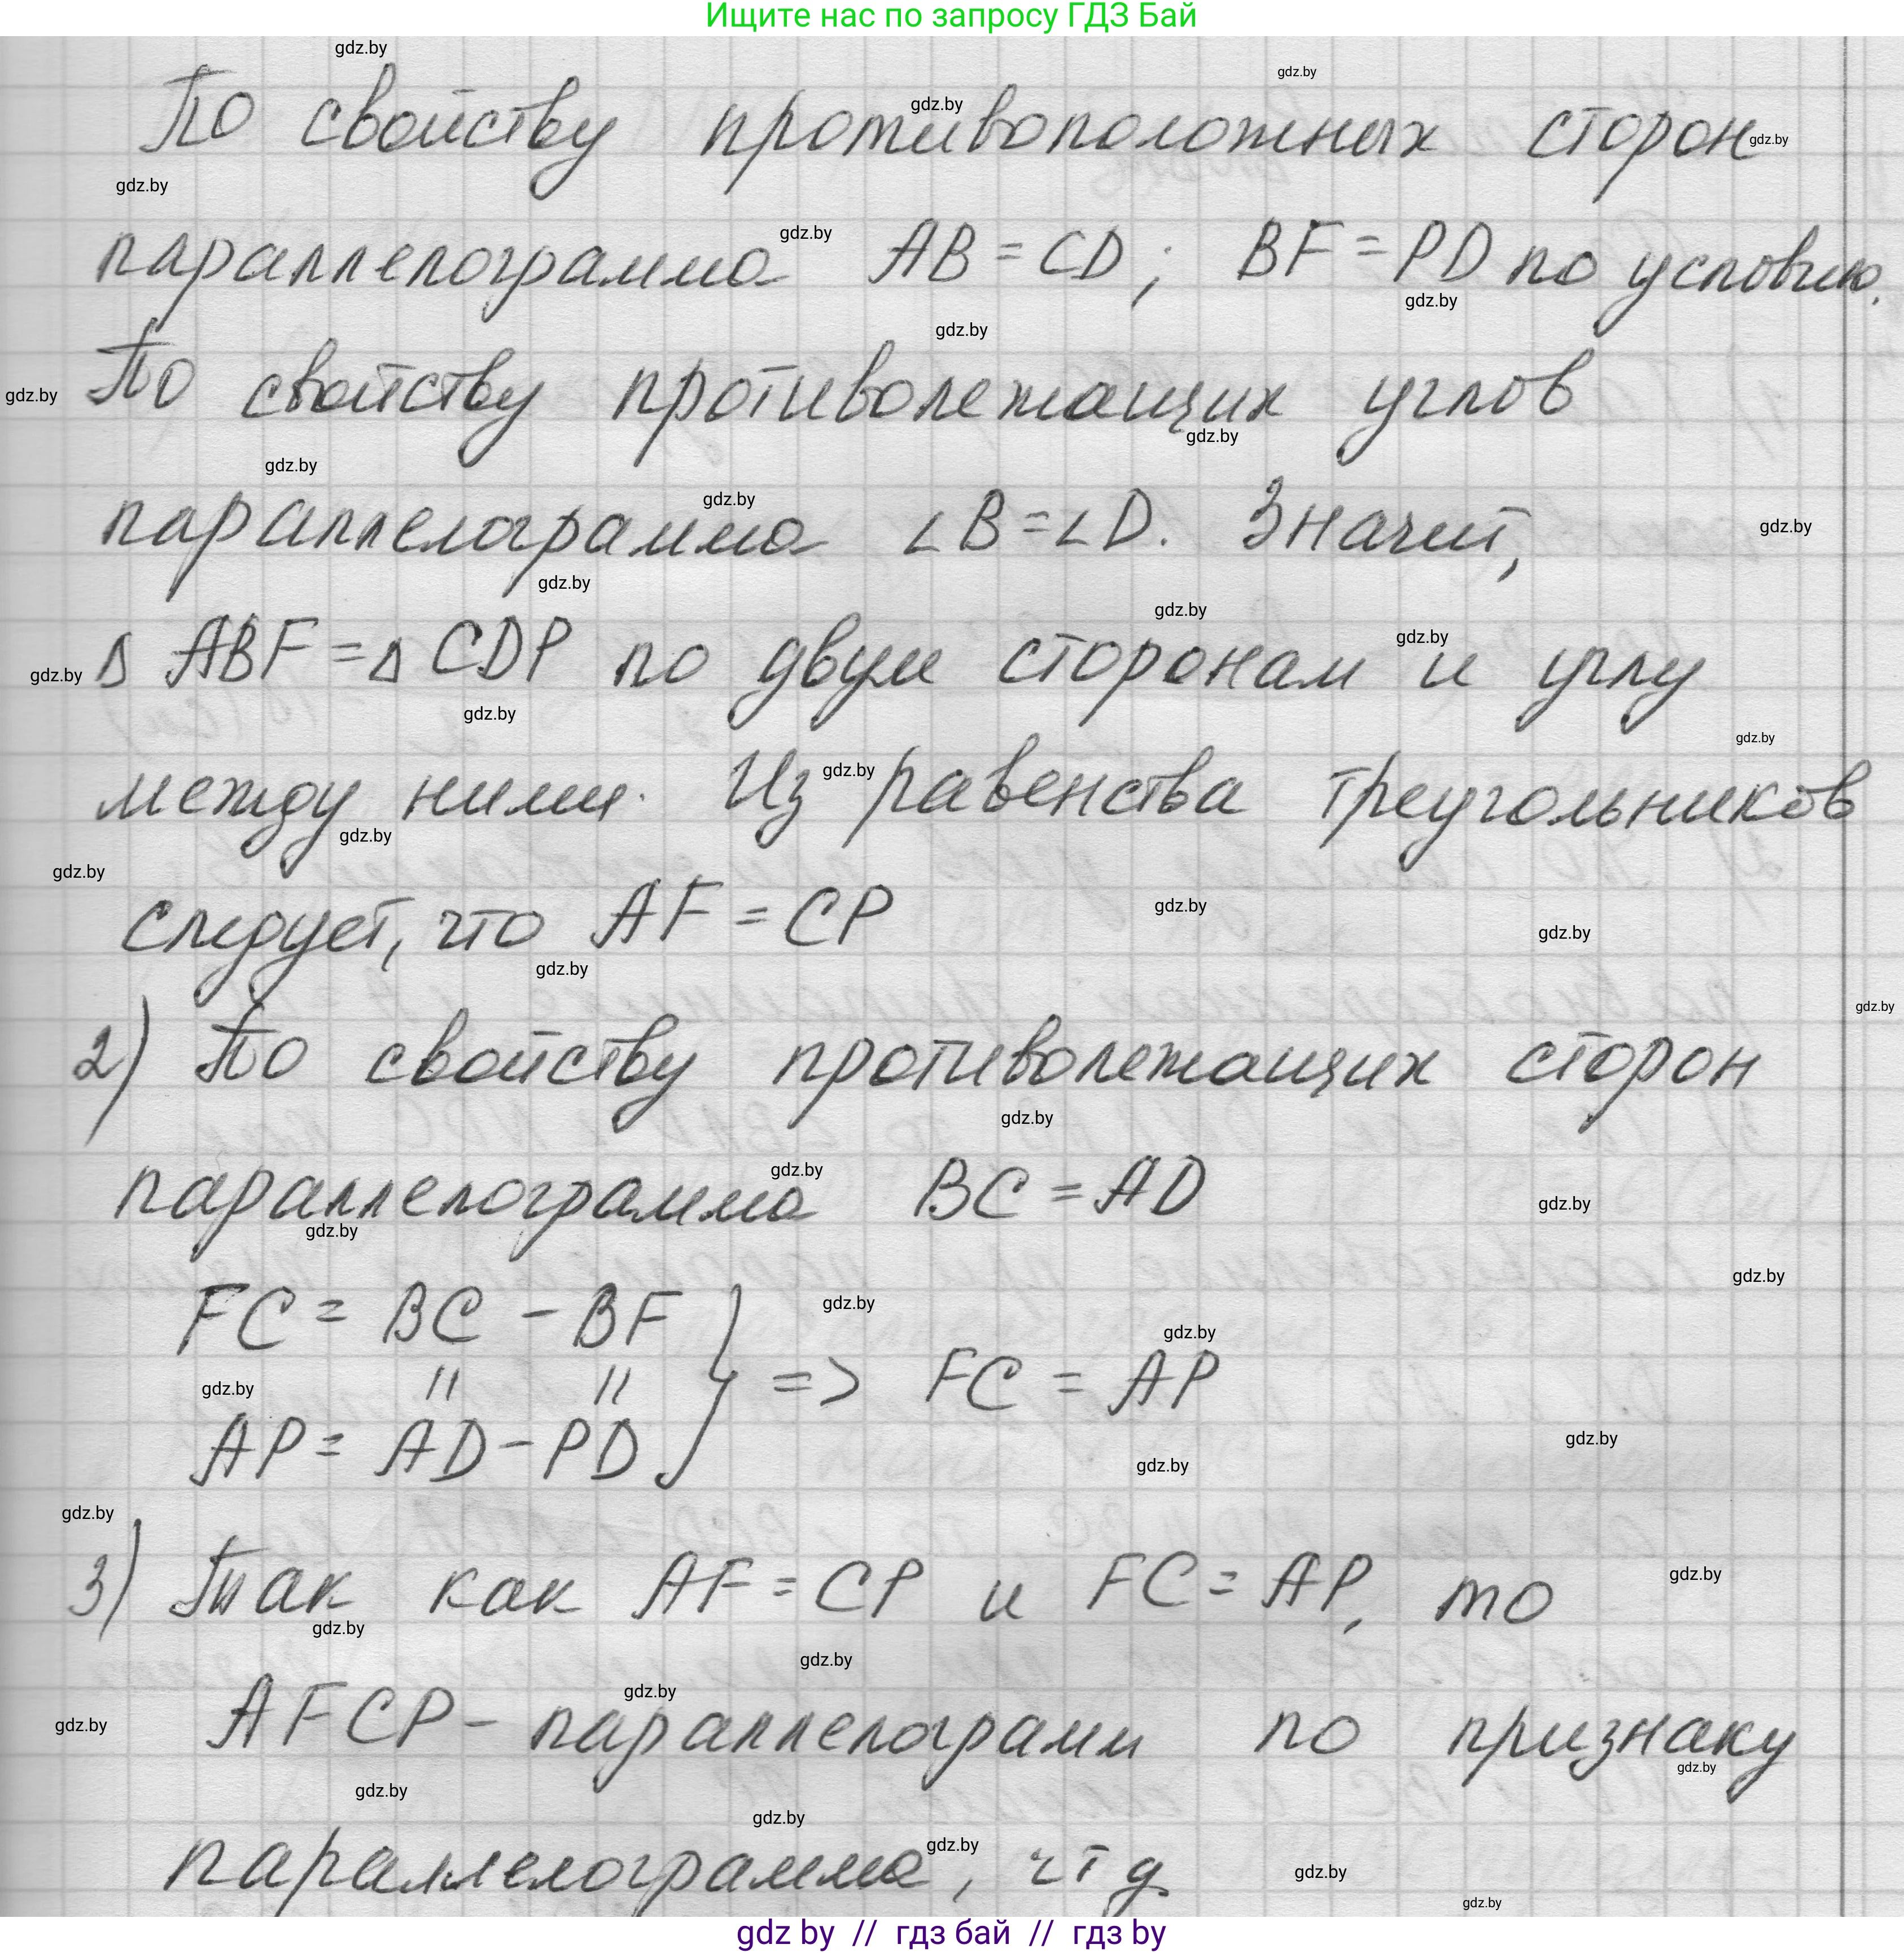 Ищите нас по запросу ГДЗ Бай
По свойству противоположных сторон
параллелограмма AB = CD; BF = PD по условию.
По свойству противолежащих углов
параллелограмма ∠B=∠D. Значит,
Δ ABF = Δ CDP по двум сторонам и углу
между ними. Из равенства треугольников
следует, что AF = CP
2) По свойству противолежащих сторон
параллелограмма BC = AD
FC = BC - BF
|| || } => FC = AP
AP = AD - PD
3) Так как AF = CP и FC = AP, то
AFCP - параллелограмм по признаку
параллелограмма, чтд
gdz by // гдз бай // гдз by